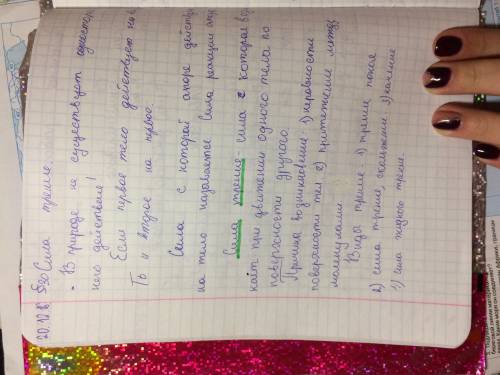 20.12.18 §30 Сила трение.
- В природе не существует
него действие!
Если первое тело действует на в
то и второе на первое.
Сила с которой опоре действ
на тело называется сила реакции опо
Сила трение - сила с которая воз
кает при движении одного тела по
поверхности другого.
Причина возникновение: 1) неровности
поверхности тел 2) притяжение между
молекулами.
Виды трение: 1) трение покоя
2) сила трение, скольжения 3) качение